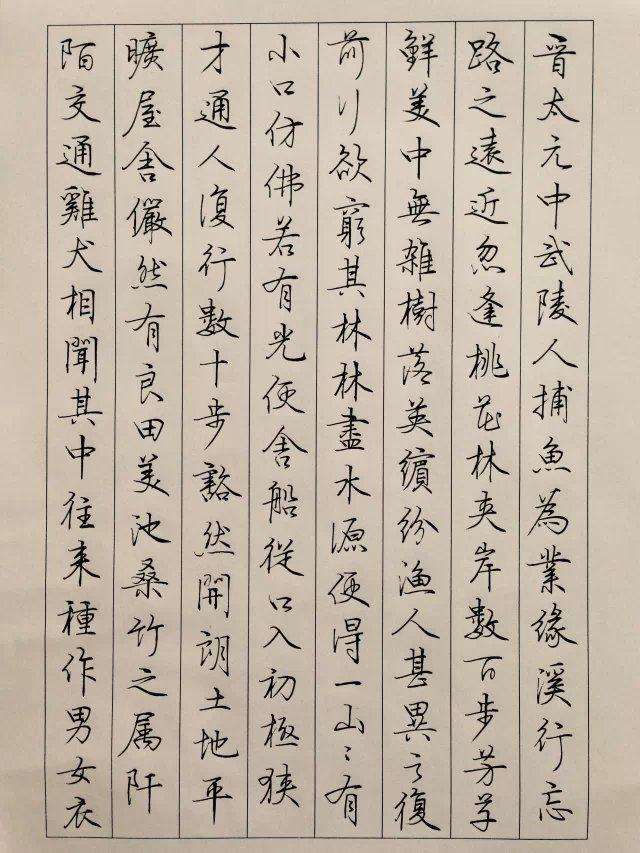 晋太元中武陵人捕魚為業緣溪行忘
路之遠近忽逢桃花林夾岸數百步芳草
鮮美中無雜樹落英繽紛漁人甚異之復
前行欲窮其林林盡水源便得一山〻有
小口仿佛若有光便舍船從口入初極狹
才通人復行數十步豁然開朗土地平
曠屋舍儼然有良田美池桑竹之属阡
陌交通雞犬相聞其中往来種作男女衣